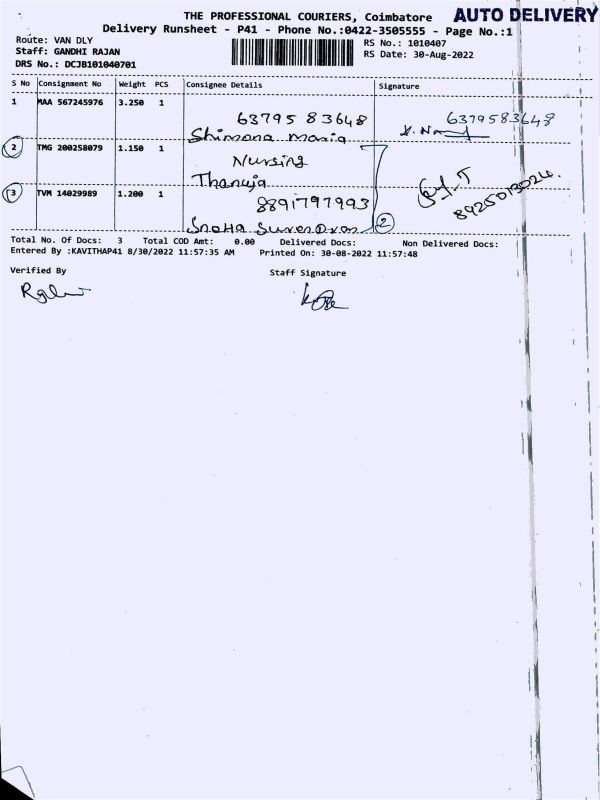 THE PROFESSIONAL COURIERS, Coimbatore AUTO DELIVERY
Delivery Runsheet - P41 - Phone No.:0422-3505555 - Page No.:1
Route: VAN DLY RS No.: 1010407
Staff: GANDHI RAJAN RS Date: 30-Aug-2022
DRS No.: DCJB101040701
S No Consignment No Weight PCS Consignee Details Signature
1 MAA 567245976 3.250 1
6379583648 6379583648
Shimona Maria
2 TMG 200258079 1.150 1
Nursing
Thanuja
3 TVM 14029989 1.200 1
8891797993 8925013024.
Sneha Surendran 2
Total No. Of Docs: 3 Total COD Amt: 0.00 Delivered Docs: Non Delivered Docs:
Entered By :KAVITHAP41 8/30/2022 11:57:35 AM Printed On: 30-08-2022 11:57:48
Verified By Staff Signature